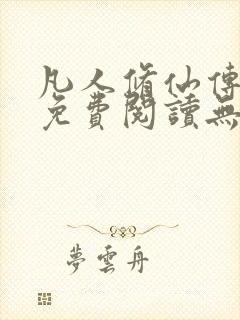 凡人脩仙傳
免費閱讀無
夢雲舟